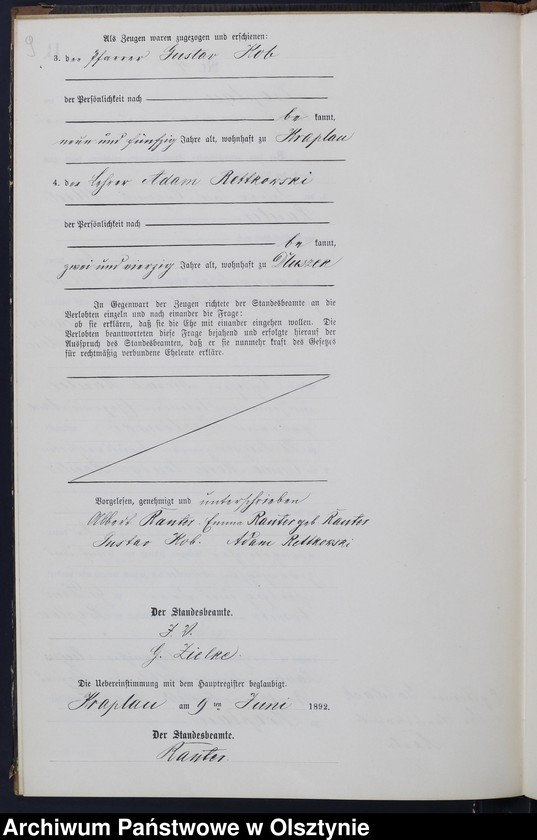 Als Zeugen waren zugezogen und erschienen:
3. der Pfarrer Gustav Kob
der Persönlichkeit nach
be kannt,
neun und fünfzig Jahre alt, wohnhaft zu Kraplau
4. der Lehrer Adam Rettkowski
der Persönlichkeit nach
be kannt,
zwei und vierzig Jahre alt, wohnhaft zu Dluszek
In Gegenwart der Zeugen richtete der Standesbeamte an die
Verlobten einzeln und nach einander die Frage:
ob sie erklären, daß sie die Ehe mit einander eingehen wollen. Die
Verlobten beantworteten diese Frage bejahend und erfolgte hierauf der
Ausspruch des Standesbeamten, daß er sie nunmehr kraft des Gesetzes
für rechtmäßig verbundene Eheleute erkläre.
Vorgelesen, genehmigt und unterschrieben
Albert Rauter. Emma Rauter geb Rauter
Gustav Kob. Adam Rettkowski
Der Standesbeamte.
I. V.
G. Zielke.
Die Uebereinstimmung mit dem Hauptregister beglaubigt.
Kraplau am 9 ten Juni 1892.
Der Standesbeamte.
Rauter.
Archiwum Państwowe w Olsztynie